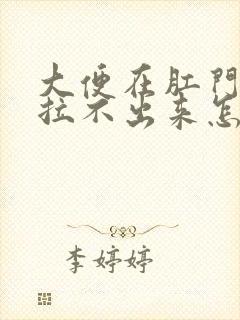 大便在肛門
拉不出来怎
李婷婷